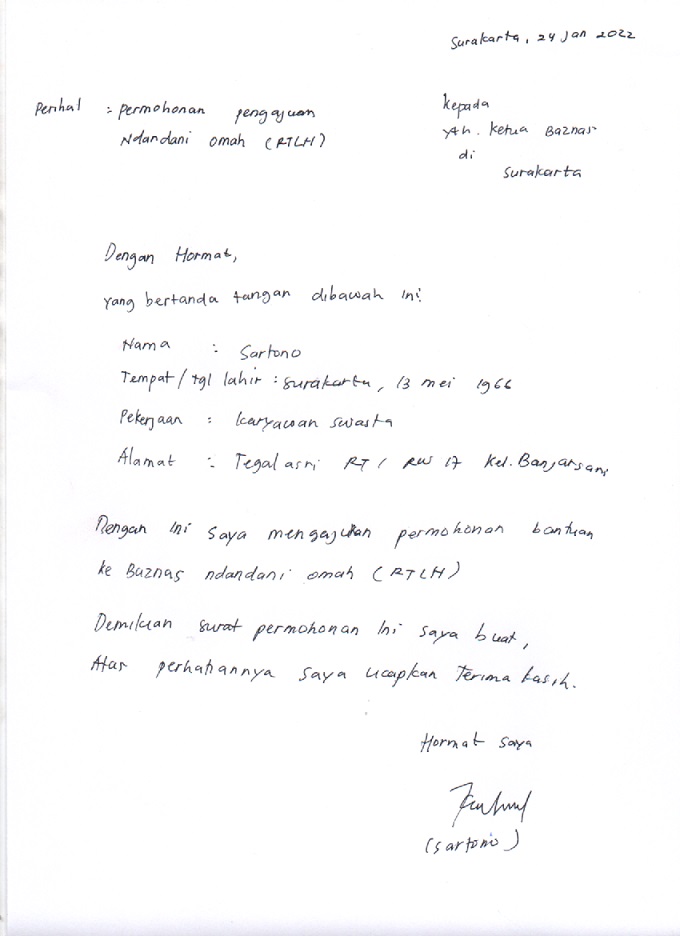 Surakarta, 24 Jan 2022
Perihal : permohonan pengajuan
Ndandani omah (RTLH)
kepada
Yth. Ketua Baznas
di
Surakarta
Dengan Hormat,
yang bertanda tangan dibawah ini:
Nama : Sartono
Tempat/tgl lahir : surakarta, 13 mei 1966
Pekerjaan : karyawan swasta
Alamat : Tegalasri RT 1 RW 17 Kel. Banjarsari
Dengan ini saya mengajukan permohonan bantuan
ke Baznas ndandani omah (RTLH)
Demikian surat permohonan ini saya buat,
Atas perhatiannya saya ucapkan Terima kasih.
Hormat saya
(sartono)